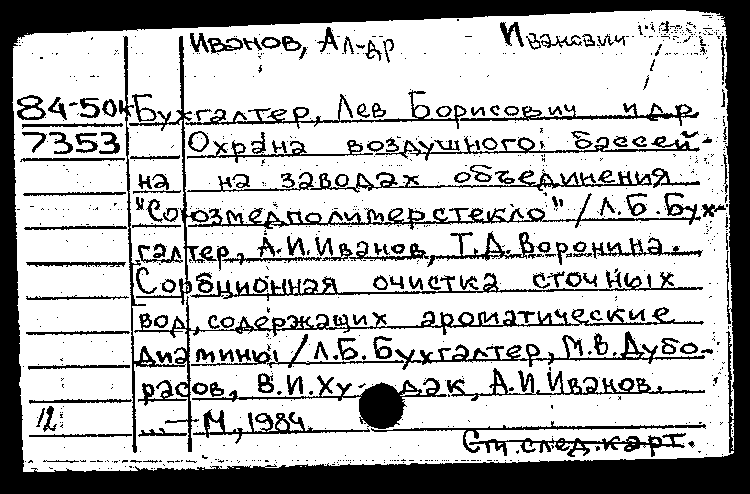 Ивонов, Ал-др Иванович
84-50к Бухгалтер, Лев Борисович и др
7353 Охрана воздушного бассей-
на на заводах объединения
"Союзмедполимерстекло" / Л.Б. Бух-
галтер, А.И. Иванов, Т.Д. Воронина.
Сорбционная очистка сточных
вод, содержащих ароматические
диамины / Л.Б. Бухгалтер, М.В. Дубо-
расов, В.И. Ху-дак, А.И. Иванов.
12 ... – М., 1984.
См. след. карт.